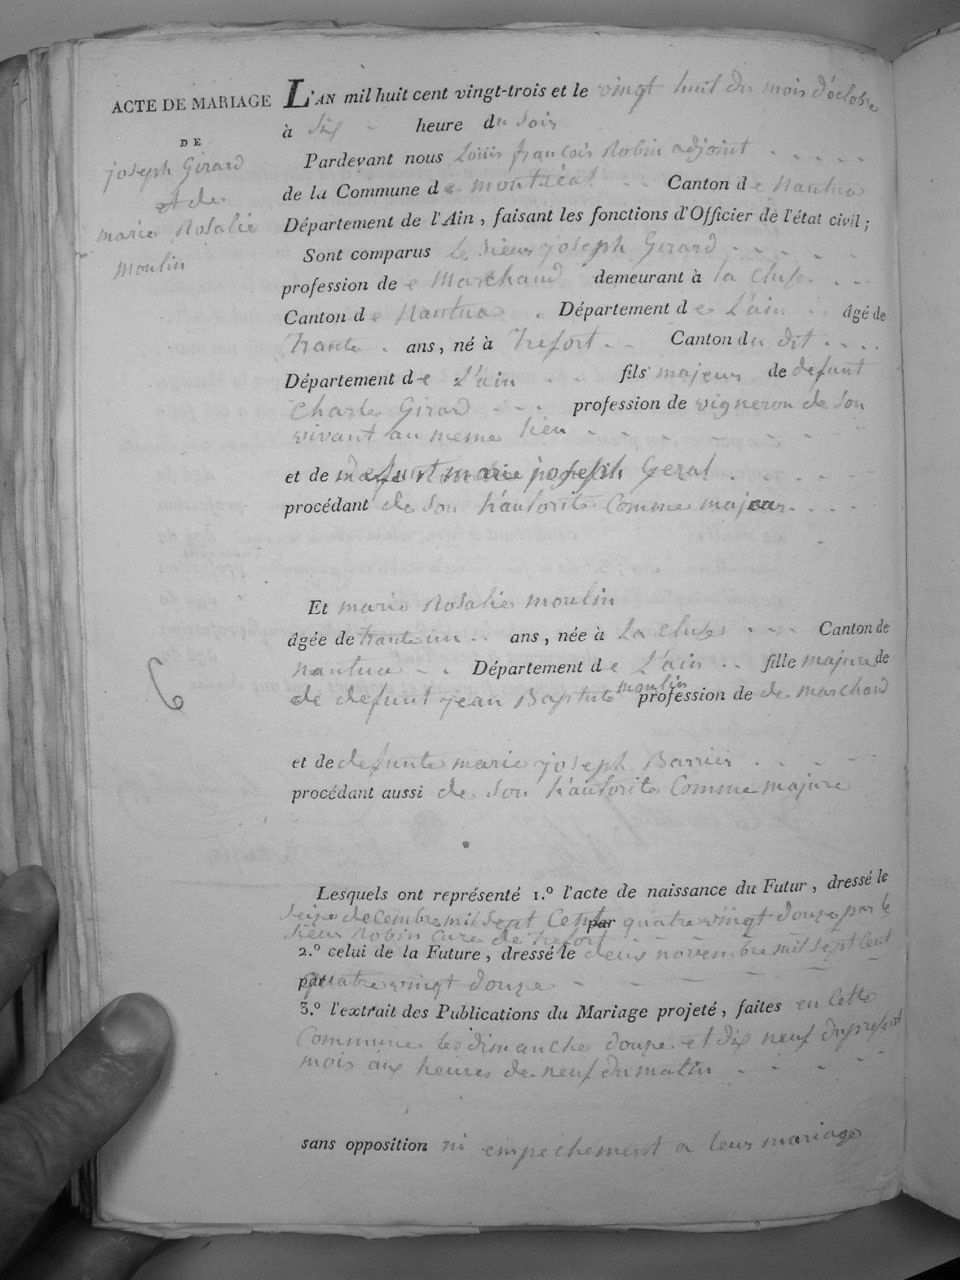 ACTE DE MARIAGE
DE
joseph Girard
et de
marie Rosalie
moulin
L'AN mil huit cent vingt-trois et le vingt huit du mois d'octobre
à six heure du soir
Pardevant nous Louis françois Robin adjoint
de la Commune de montréal Canton de Nantua
Département de l'Ain, faisant les fonctions d'Officier de l'état civil;
Sont comparus le sieur joseph Girard
profession de Marchand demeurant à la Cluse
Canton de Nantua Département de L'ain âgé de
Trante ans, né à Trefort Canton du dit
Département de L'ain fils majeur de defunt
Charle Girard profession de vigneron de son
vivant au meme lieu
et de defunt marie joseph Geral
procédant de son h'autorité Comme majeur
Et marie Rosalie moulin
âgée de trante un ans, née à La Cluse Canton de
Nantua Département de L'ain fille majure de
de defunt jean Baptiste moulin profession de de marchand
et de defunte marie joseph Barrier
procédant aussi de son h'autorité Comme majure
6
Lesquels ont représenté 1.º l'acte de naissance du Futur, dressé le
seize decembre mil sept Cent par quatre vingt douze par le
sieur Robin Curé de Trefort
2.º celui de la Future, dressé le deux novembre mil sept Cent
par quatre vingt douze
3.º l'extrait des Publications du Mariage projeté, faites en Cette
Commune les dimanche douze et dix neuf du present
mois aux heures de neuf du matin
sans opposition ni empechement a leur mariage